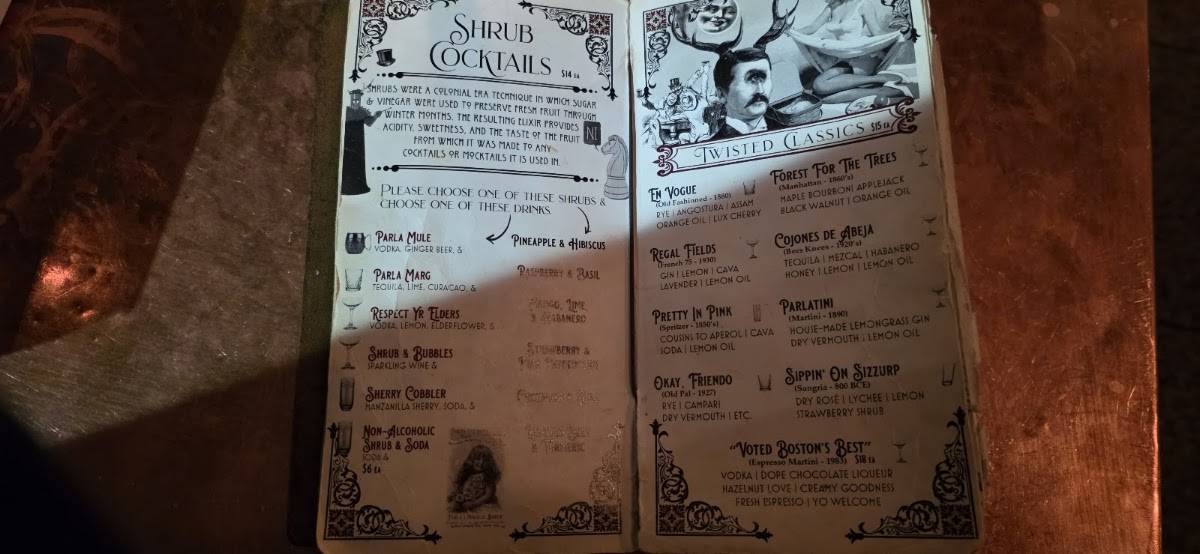 Shrub
Cocktails $14 ea
Shrubs were a colonial era technique in which sugar
& vinegar were used to preserve fresh fruit through
winter months. The resulting elixir provides
acidity, sweetness, and the taste of the fruit
from which it was made to any
cocktails or mocktails it is used in.
Please choose one of these shrubs &
choose one of these drinks
Parla Mule
Vodka, Ginger Beer, &
Parla Marg
Tequila, Lime, Curacao, &
Respect Yr Elders
Vodka, Lemon, Elderflower, &
Shrub & Bubbles
Sparkling Wine &
Sherry Cobbler
Manzanilla Sherry, Soda, &
Non-Alcoholic
Shrub & Soda
Soda &
$6 ea
Pineapple & Hibiscus
Raspberry & Basil
Mango, Lime,
& Habanero
Strawberry &
Twisted Classics $15 ea
En Vogue
(Old Fashioned - 1880)
Rye | Angostura | Assam
Orange Oil | Lux Cherry
Regal Fields
(French 75 - 1930)
Gin | Lemon | Cava
Lavender | Lemon Oil
Pretty In Pink
(Spritzer - 1850's)
Cousins to Aperol | Cava
Soda | Lemon Oil
Okay, Friendo
(Old Pal - 1927)
Rye | Campari
Dry Vermouth | Etc.
Forest For The Trees
(Manhattan - 1860's)
Maple Bourbon | Applejack
Black Walnut | Orange Oil
Cojones de Abeja
(Bees Knees - 1920's)
Tequila | Mezcal | Habanero
Honey | Lemon | Lemon Oil
Parlatini
(Martini - 1890)
House-Made Lemongrass Gin
Dry Vermouth | Lemon Oil
Sippin' On Sizzurp
(Sangria - 800 BCE)
Dry Rosé | Lychee | Lemon
Strawberry Shrub
"Voted Boston's Best"
(Espresso Martini - 1983) $18 ea
Vodka | Dope Chocolate Liqueur
Hazelnut Love | Creamy Goodness
Fresh Espresso | Yo Welcome